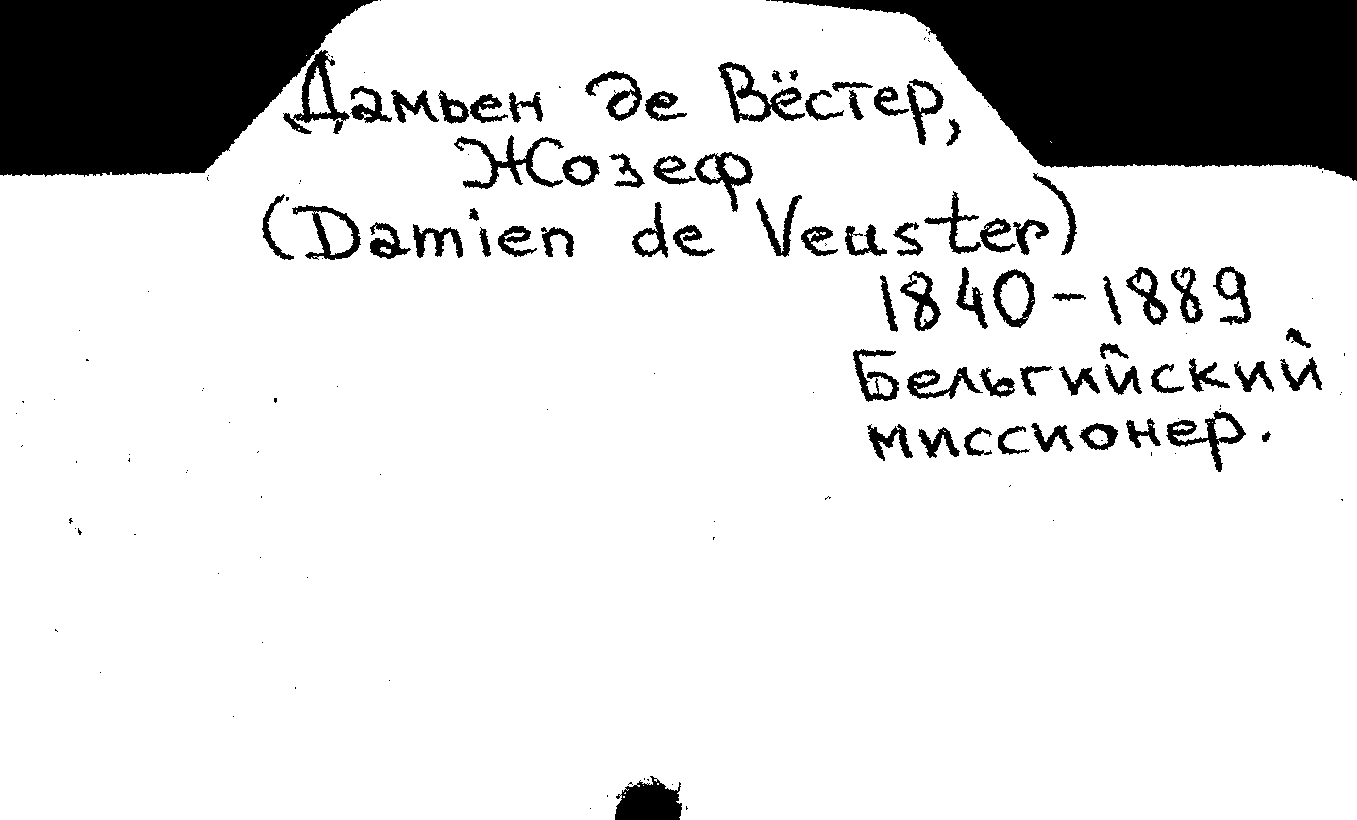 Дамьен де Вёстер,
Жозеф
(Damien de Veuster)
1840-1889
Бельгийский
миссионер.